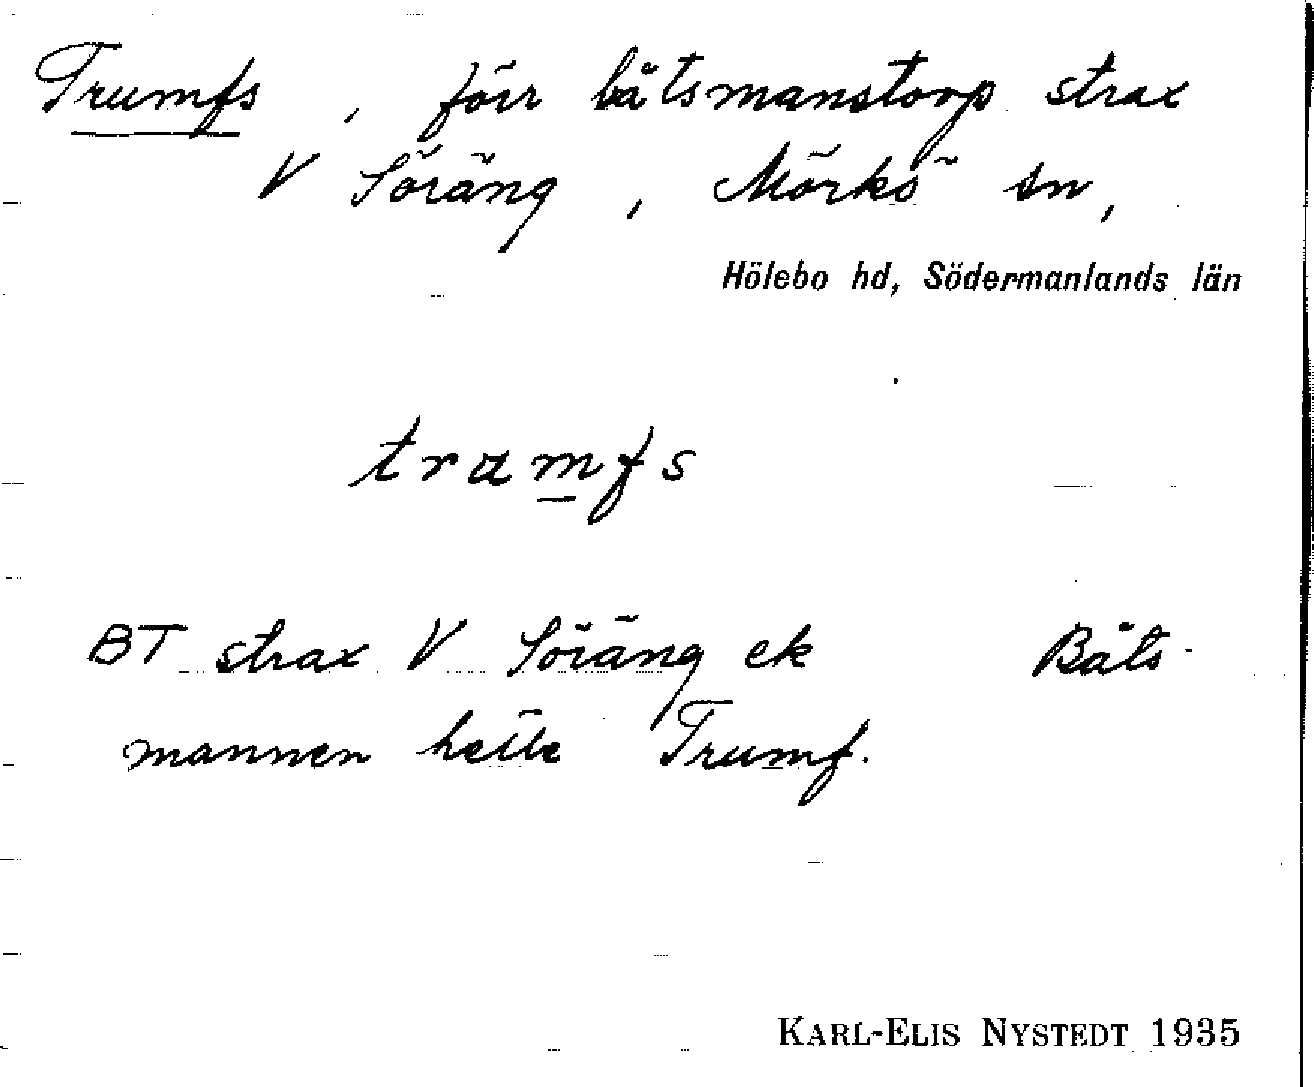 Trumfs, förr båtsmanstorp strax
V Söräng, Mörkö sn,
Hölebo hd, Södermanlands län
tramfs
BT strax V Söräng ek Båts-
mannen hette Trumf.
KARL-ELIS NYSTEDT 1935